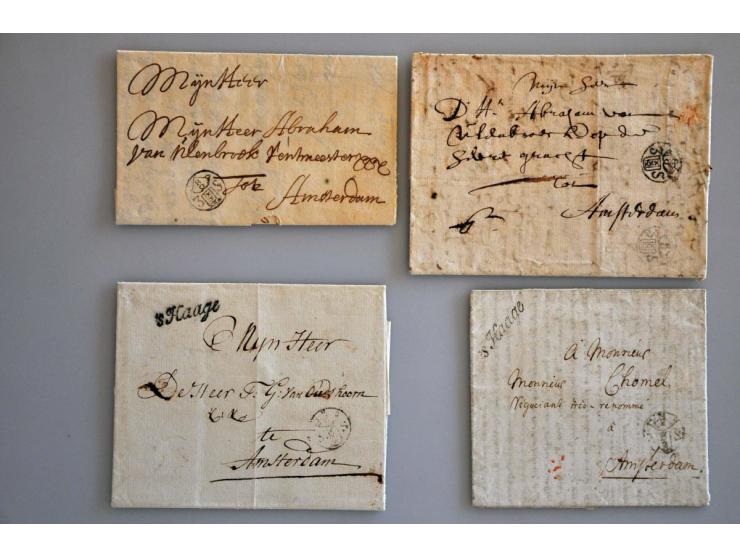 Mijn Heer
Mijn Heer Abraham
van Ulenbroek Rentmeester
Tot
Amsterdam
Mijn Heer
D' Hr Abraham van
Ulenbroek op de
gracht
Tot
Amsterdam
's Haage
Mijn Heer
De Heer F: G: van Oudshoorn
te
Amsterdam
's Haage
À Monsieur
Monsieur Chomel
Negociant tres-renommé
à
Amsterdam